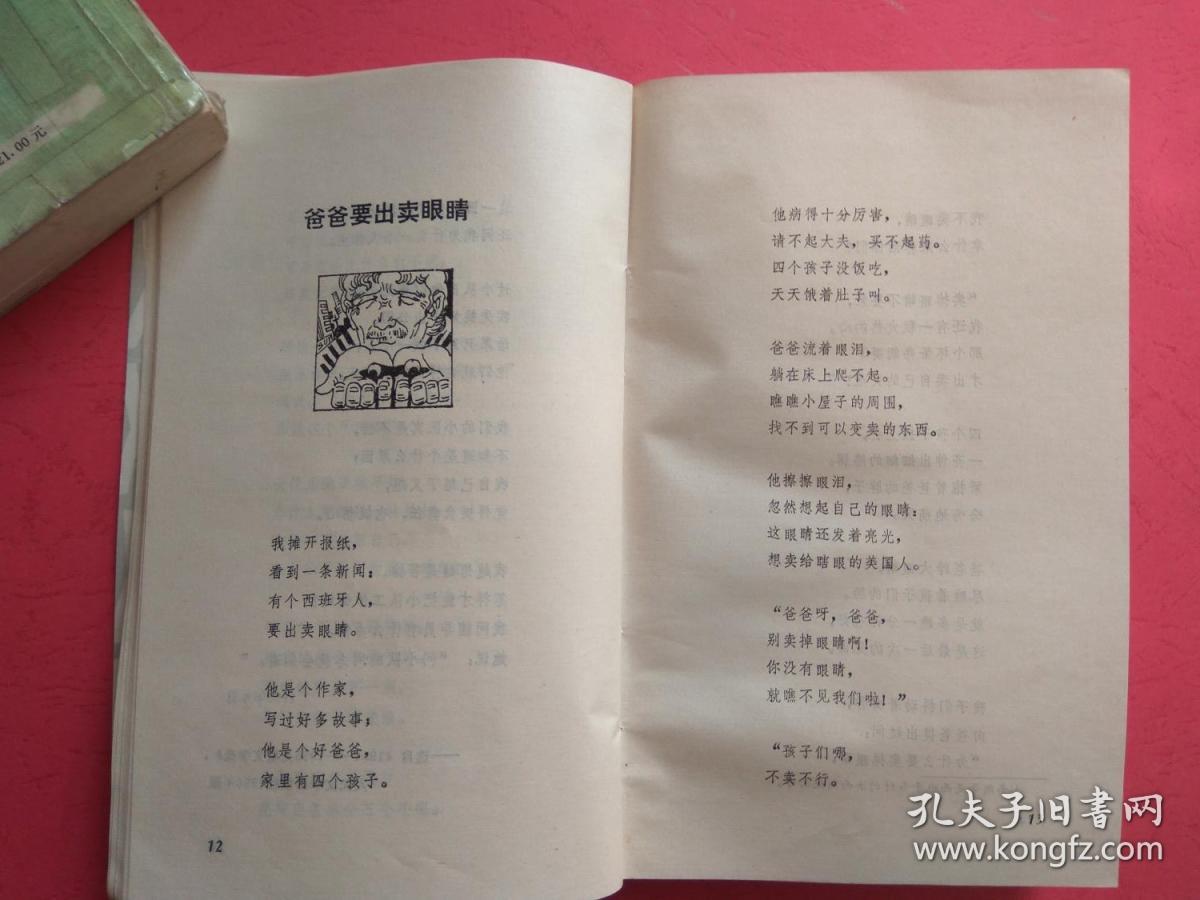 21.00 元
爸爸要出卖眼睛
我摊开报纸，
看到一条新闻：
有个西班牙人，
要出卖眼睛。
他是个作家，
写过好多故事；
他是个好爸爸，
家里有四个孩子。
12
他病得十分厉害，
请不起大夫，买不起药。
四个孩子没饭吃，
天天饿着肚子叫。
爸爸流着眼泪，
躺在床上爬不起。
瞧瞧小屋子的周围，
找不到可以变卖的东西。
他擦擦眼泪，
忽然想起自己的眼睛：
这眼睛还发着亮光，
想卖给瞎眼的美国人。
“爸爸呀，爸爸，
别卖掉眼睛啊！
你没有眼睛，
就瞧不见我们啦！”
“孩子们哪，
不卖不行。
孔夫子旧书网
www.kongfz.com